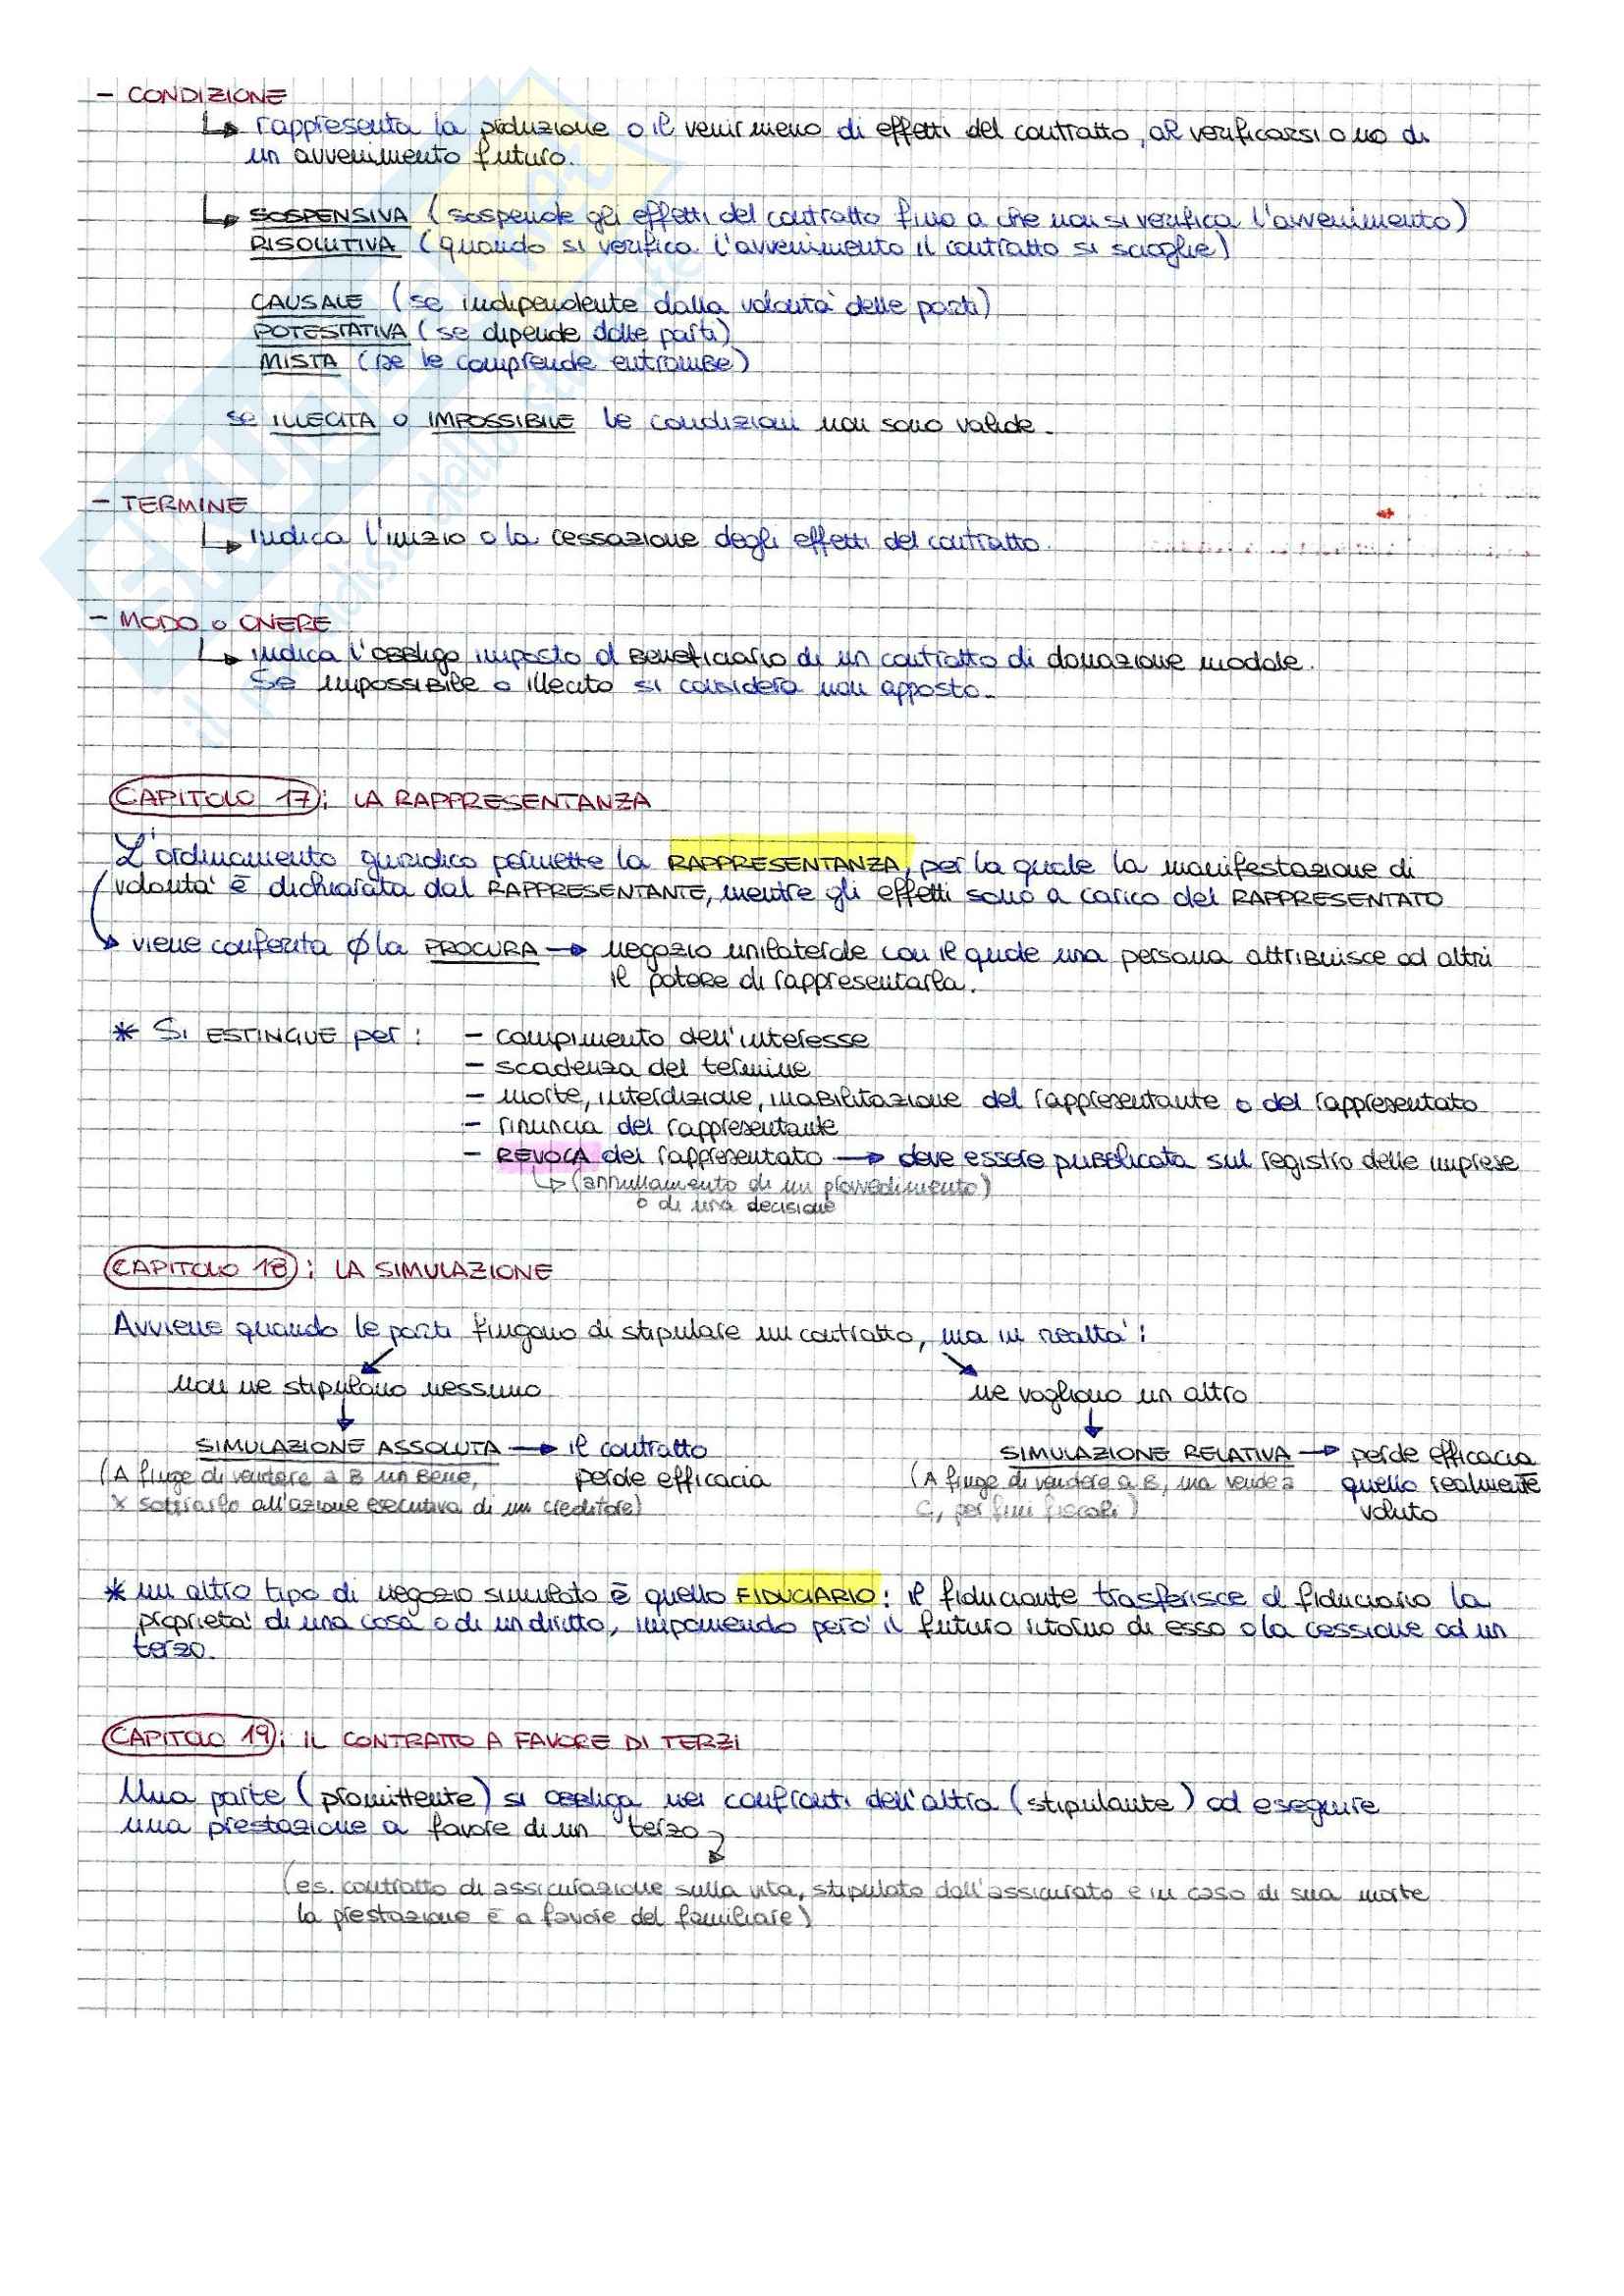 - CONDIZIONE
↳ rappresenta la produzione o il venir meno di effetti del contratto, al verificarsi o no di
un avvenimento futuro.
↳ SOSPENSIVA (sospende gli effetti del contratto fino a che non si verifica l'avvenimento)
RISOLUTIVA (quando si verifica l'avvenimento il contratto si scioglie)
CAUSALE (se indipendente dalla volontà delle parti)
POTESTATIVA (se dipende dalle parti)
MISTA (se le comprende entrambe)
se ILLECITA o IMPOSSIBILE le condizioni non sono valide.
- TERMINE
↳ indica l'inizio o la cessazione degli effetti del contratto.
- MODO o ONERE
↳ indica l'obbligo imposto al beneficiario di un contratto di donazione modale.
Se impossibile o illecito si considera non apposto.
CAPITOLO 17: LA RAPPRESENTANZA
L'ordinamento giuridico permette la RAPPRESENTANZA, per la quale la manifestazione di
volontà è dichiarata dal RAPPRESENTANTE, mentre gli effetti sono a carico del RAPPRESENTATO
→ viene conferita la PROCURA → negozio unilaterale con il quale una persona attribuisce ad altri
il potere di rappresentarla.
* Si ESTINGUE per: - compimento dell'interesse
- scadenza del termine
- morte, interdizione, inabilitazione del rappresentante o del rappresentato
- rinuncia del rappresentante
- REVOCA del rappresentato → deve essere pubblicata sul registro delle imprese
↳ (annullamento di un provvedimento)
o di una decisione
CAPITOLO 18: LA SIMULAZIONE
Avviene quando le parti fingono di stipulare un contratto, ma in realtà:
non ne stipulano nessuno ne vogliono un altro
SIMULAZIONE ASSOLUTA → il contratto SIMULAZIONE RELATIVA → perde efficacia
(A finge di vendere a B un bene, perde efficacia (A finge di vendere a B, ma vende a quello realmente
x sottrarlo all'azione esecutiva di un creditore) C, per fini fiscali) voluto
* un altro tipo di negozio simulato è quello FIDUCIARIO: il fiduciante trasferisce al fiduciario la
proprietà di una cosa o di un diritto, imponendo però il futuro ritorno di esso o la cessione ad un
terzo.
CAPITOLO 19: IL CONTRATTO A FAVORE DI TERZI
Una parte (promittente) si obbliga nei confronti dell'altra (stipulante) ad eseguire
una prestazione a favore di un terzo
(es. contratto di assicurazione sulla vita, stipulato dall'assicurato e in caso di sua morte
la prestazione è a favore del familiare)